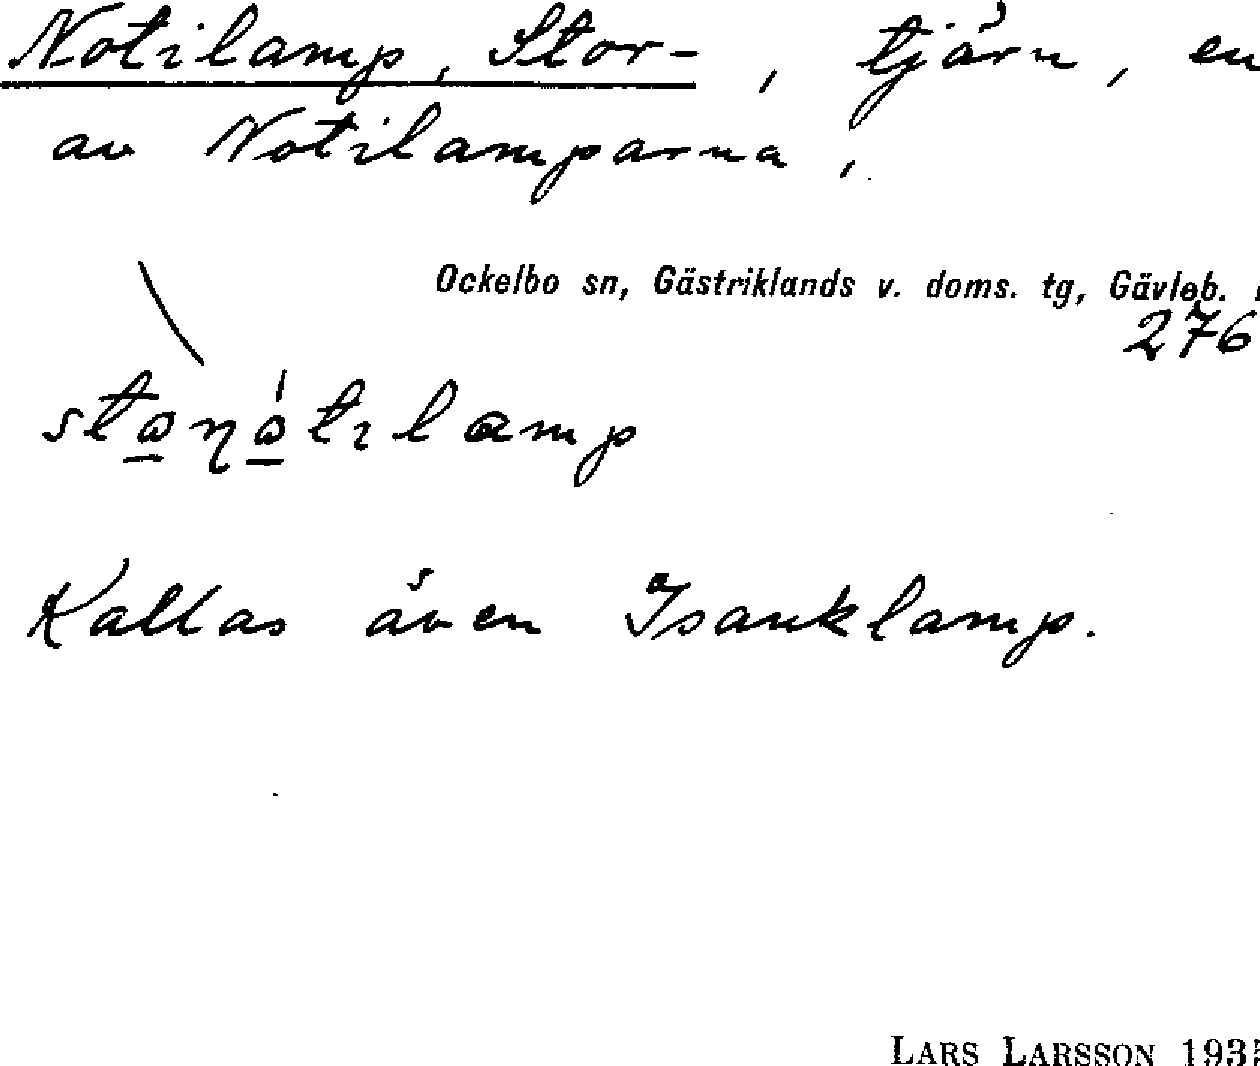 Notilamp, Stor-, tjärn, en
av Notilamparna,
Ockelbo sn, Gästriklands v. doms. tg, Gävleb.
276
Kallas även Isanklamp.
LARS LARSSON